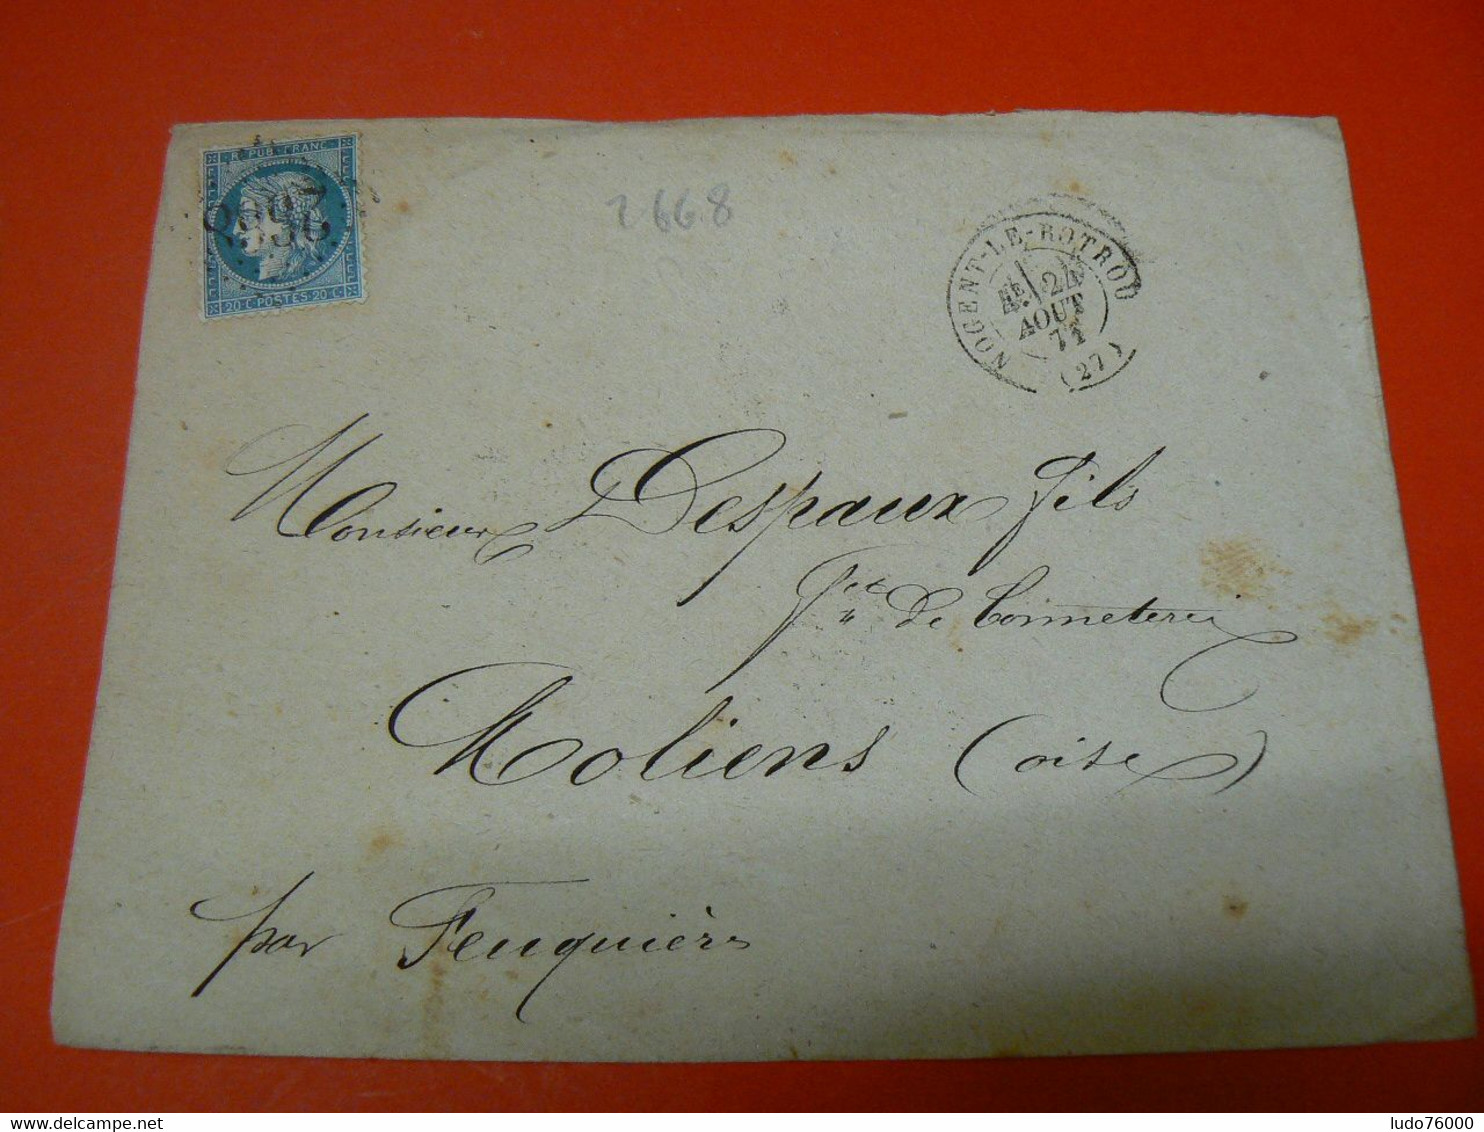 REPUB · FRANC
20 · C · POSTES · 20 · C
2668
2668
NOGENT-LE-ROTROU
4E 24
AOUT
71
(27)
Monsieur Despaux fils
fct de bonneterie
Moliens (Oise)
par Feuquières
ludo76000